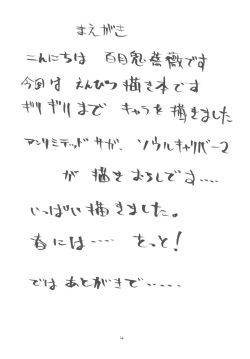 まえがき
こんにちは 百目鬼薔薇です
今回は えんぴつ描き本です
ギリギリまで キャラを描きました
アンリミテッドサガ、ソウルキャリバー2
が 描きおろしです‥‥
いっぱい描きました。
春には‥‥ もっと!
ではあとがきで‥‥‥
4